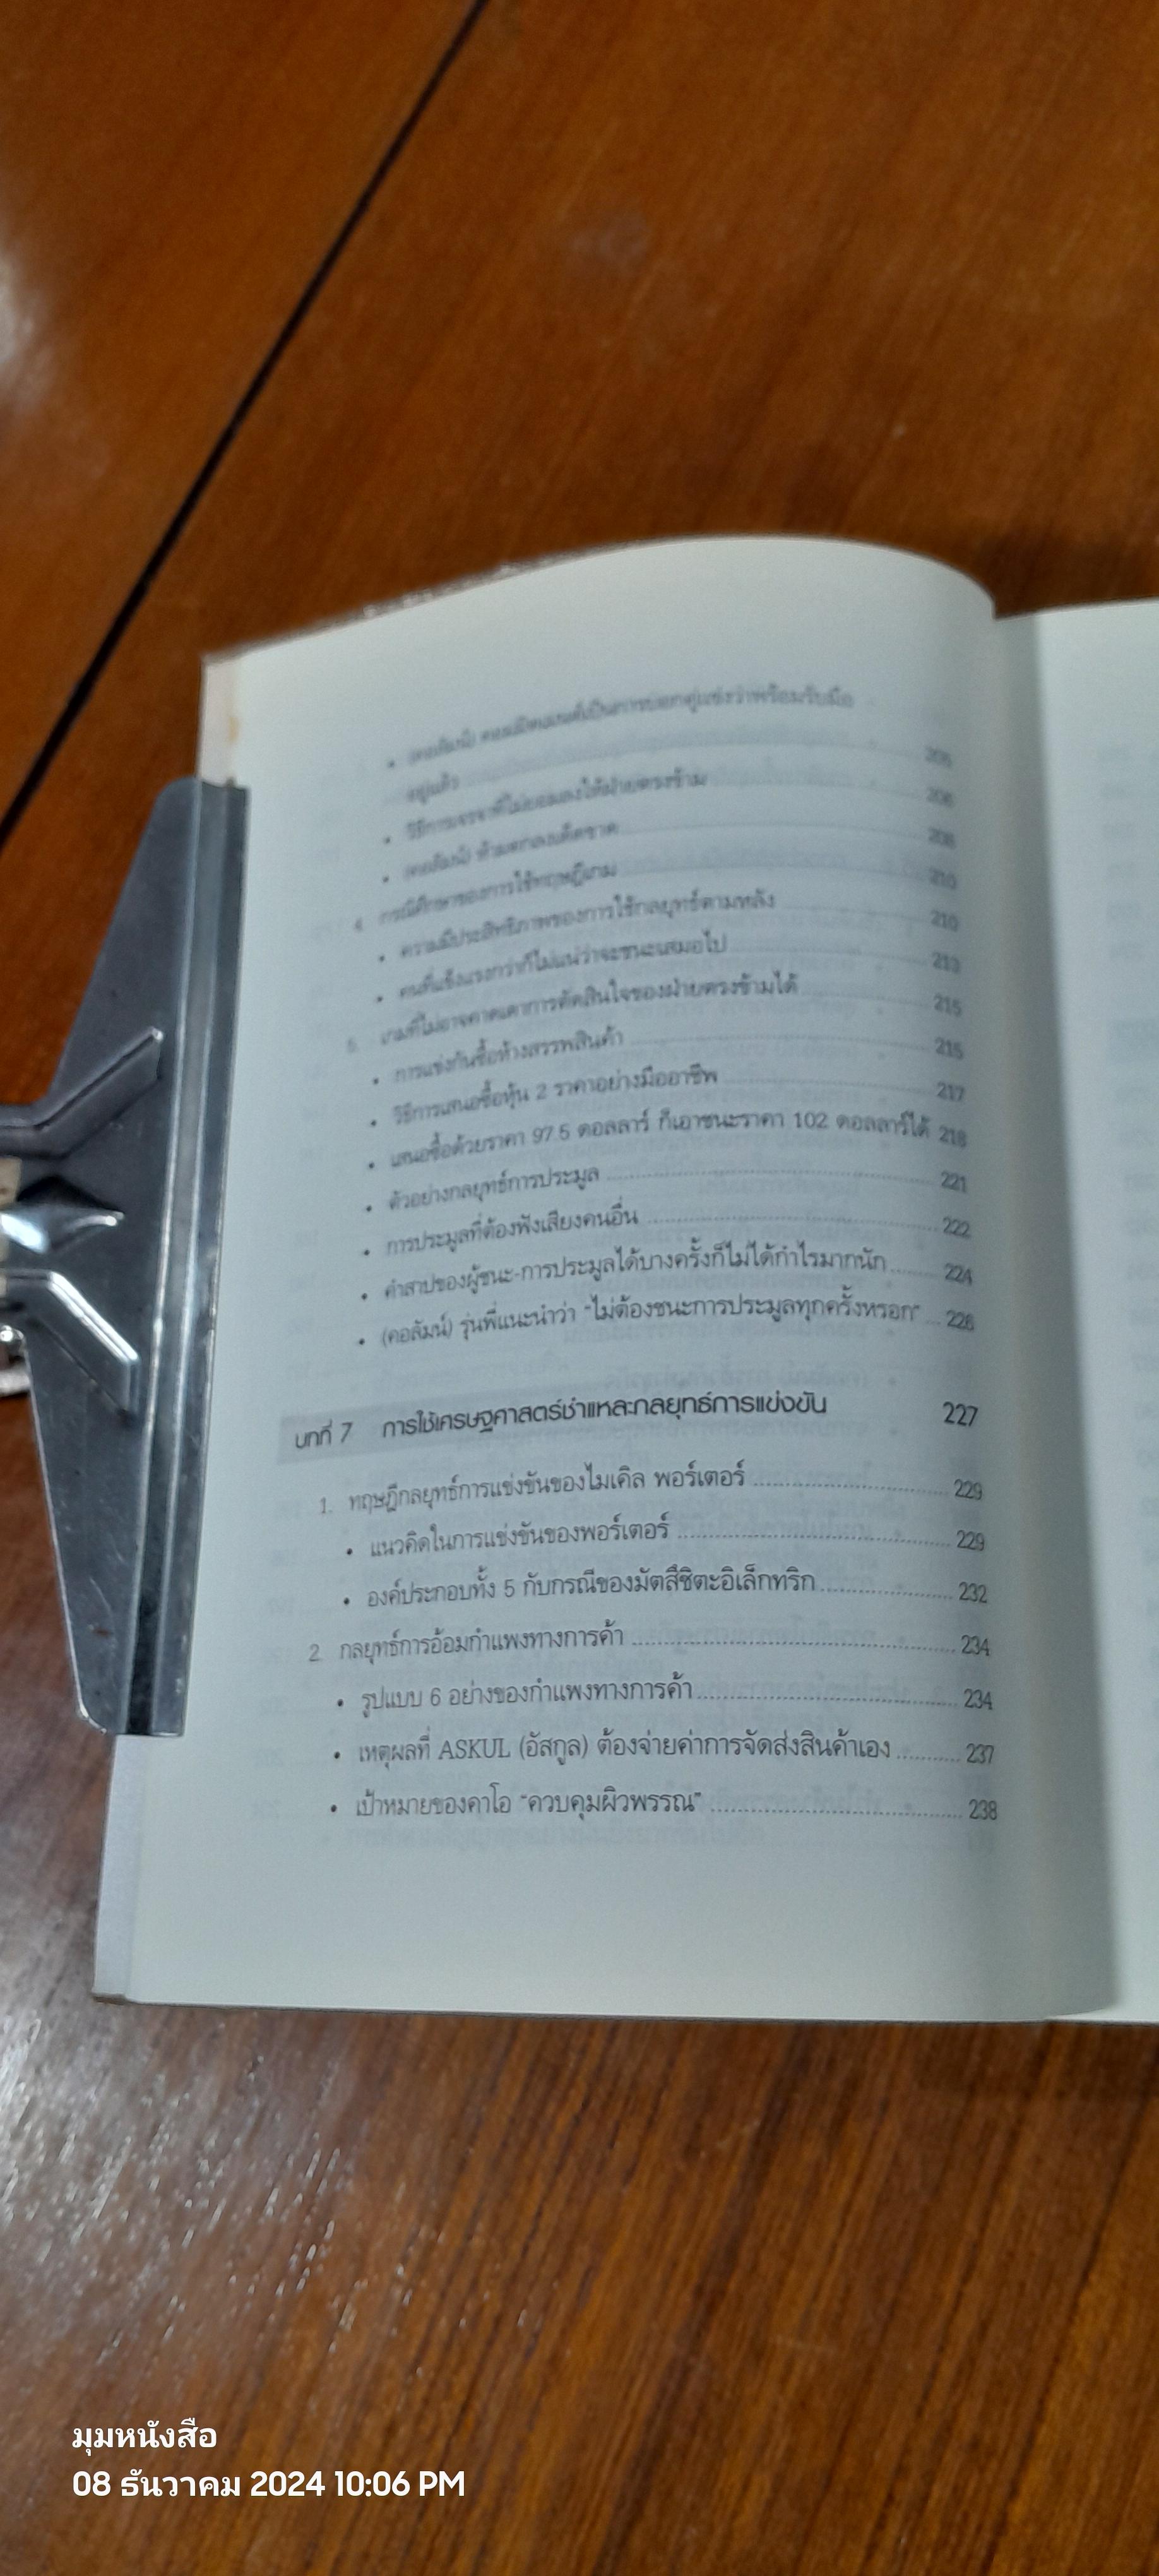 • (คอลัมน์) คอมมิตเมนต์เป็นการบอกคู่แข่งว่าพร้อมรับมือ
อยู่แล้ว 205
• วิธีการเจรจาที่ไม่ยอมลงให้ฝ่ายตรงข้าม 206
• (คอลัมน์) ห้ามตกลงเด็ดขาด 208
4. กรณีศึกษาของการใช้ทฤษฎีเกม 210
• ความมีประสิทธิภาพของการใช้กลยุทธ์ตามหลัง 210
• คนที่แข็งแรงกว่าก็ไม่แน่ว่าจะชนะเสมอไป 213
5. เกมที่ไม่อาจคาดเดาการตัดสินใจของฝ่ายตรงข้ามได้ 215
• การแข่งกันซื้อห้างสรรพสินค้า 215
• วิธีการเสนอซื้อหุ้น 2 ราคาอย่างมืออาชีพ 217
• เสนอซื้อด้วยราคา 97.5 ดอลลาร์ ก็เอาชนะราคา 102 ดอลลาร์ได้ 218
• ตัวอย่างกลยุทธ์การประมูล 221
• การประมูลที่ต้องฟังเสียงคนอื่น 222
• คำสาปของผู้ชนะ-การประมูลได้บางครั้งก็ไม่ได้กำไรมากนัก 224
• (คอลัมน์) รุ่นพี่แนะนำว่า "ไม่ต้องชนะการประมูลทุกครั้งหรอก" 226
บทที่ 7 การใช้เศรษฐศาสตร์ชำแหละกลยุทธ์การแข่งขัน 227
1. ทฤษฎีกลยุทธ์การแข่งขันของไมเคิล พอร์เตอร์ 229
• แนวคิดในการแข่งขันของพอร์เตอร์ 229
• องค์ประกอบทั้ง 5 กับกรณีของมัตสึชิตะอิเล็กทริก 232
2. กลยุทธ์การอ้อมกำแพงทางการค้า 234
• รูปแบบ 6 อย่างของกำแพงทางการค้า 234
• เหตุผลที่ ASKUL (อัสกูล) ต้องจ่ายค่าการจัดส่งสินค้าเอง 237
• เป้าหมายของคาโอ "ควบคุมผิวพรรณ" 238
มุมหนังสือ
08 ธันวาคม 2024 10:06 PM